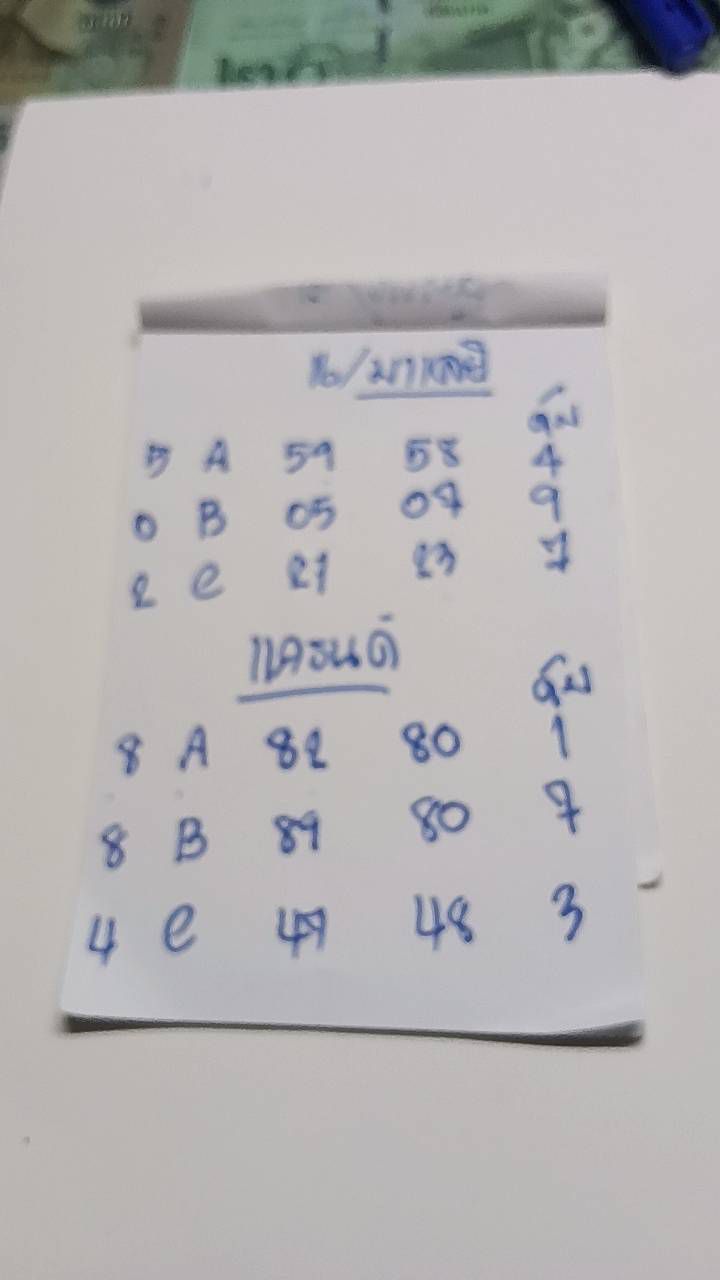 16/มาเลย์
ดับ
5 A 59 58 4
0 B 05 07 9
2 C 27 23 7
แกรนด์
ดับ
8 A 82 80 1
8 B 89 80 7
4 C 47 48 3